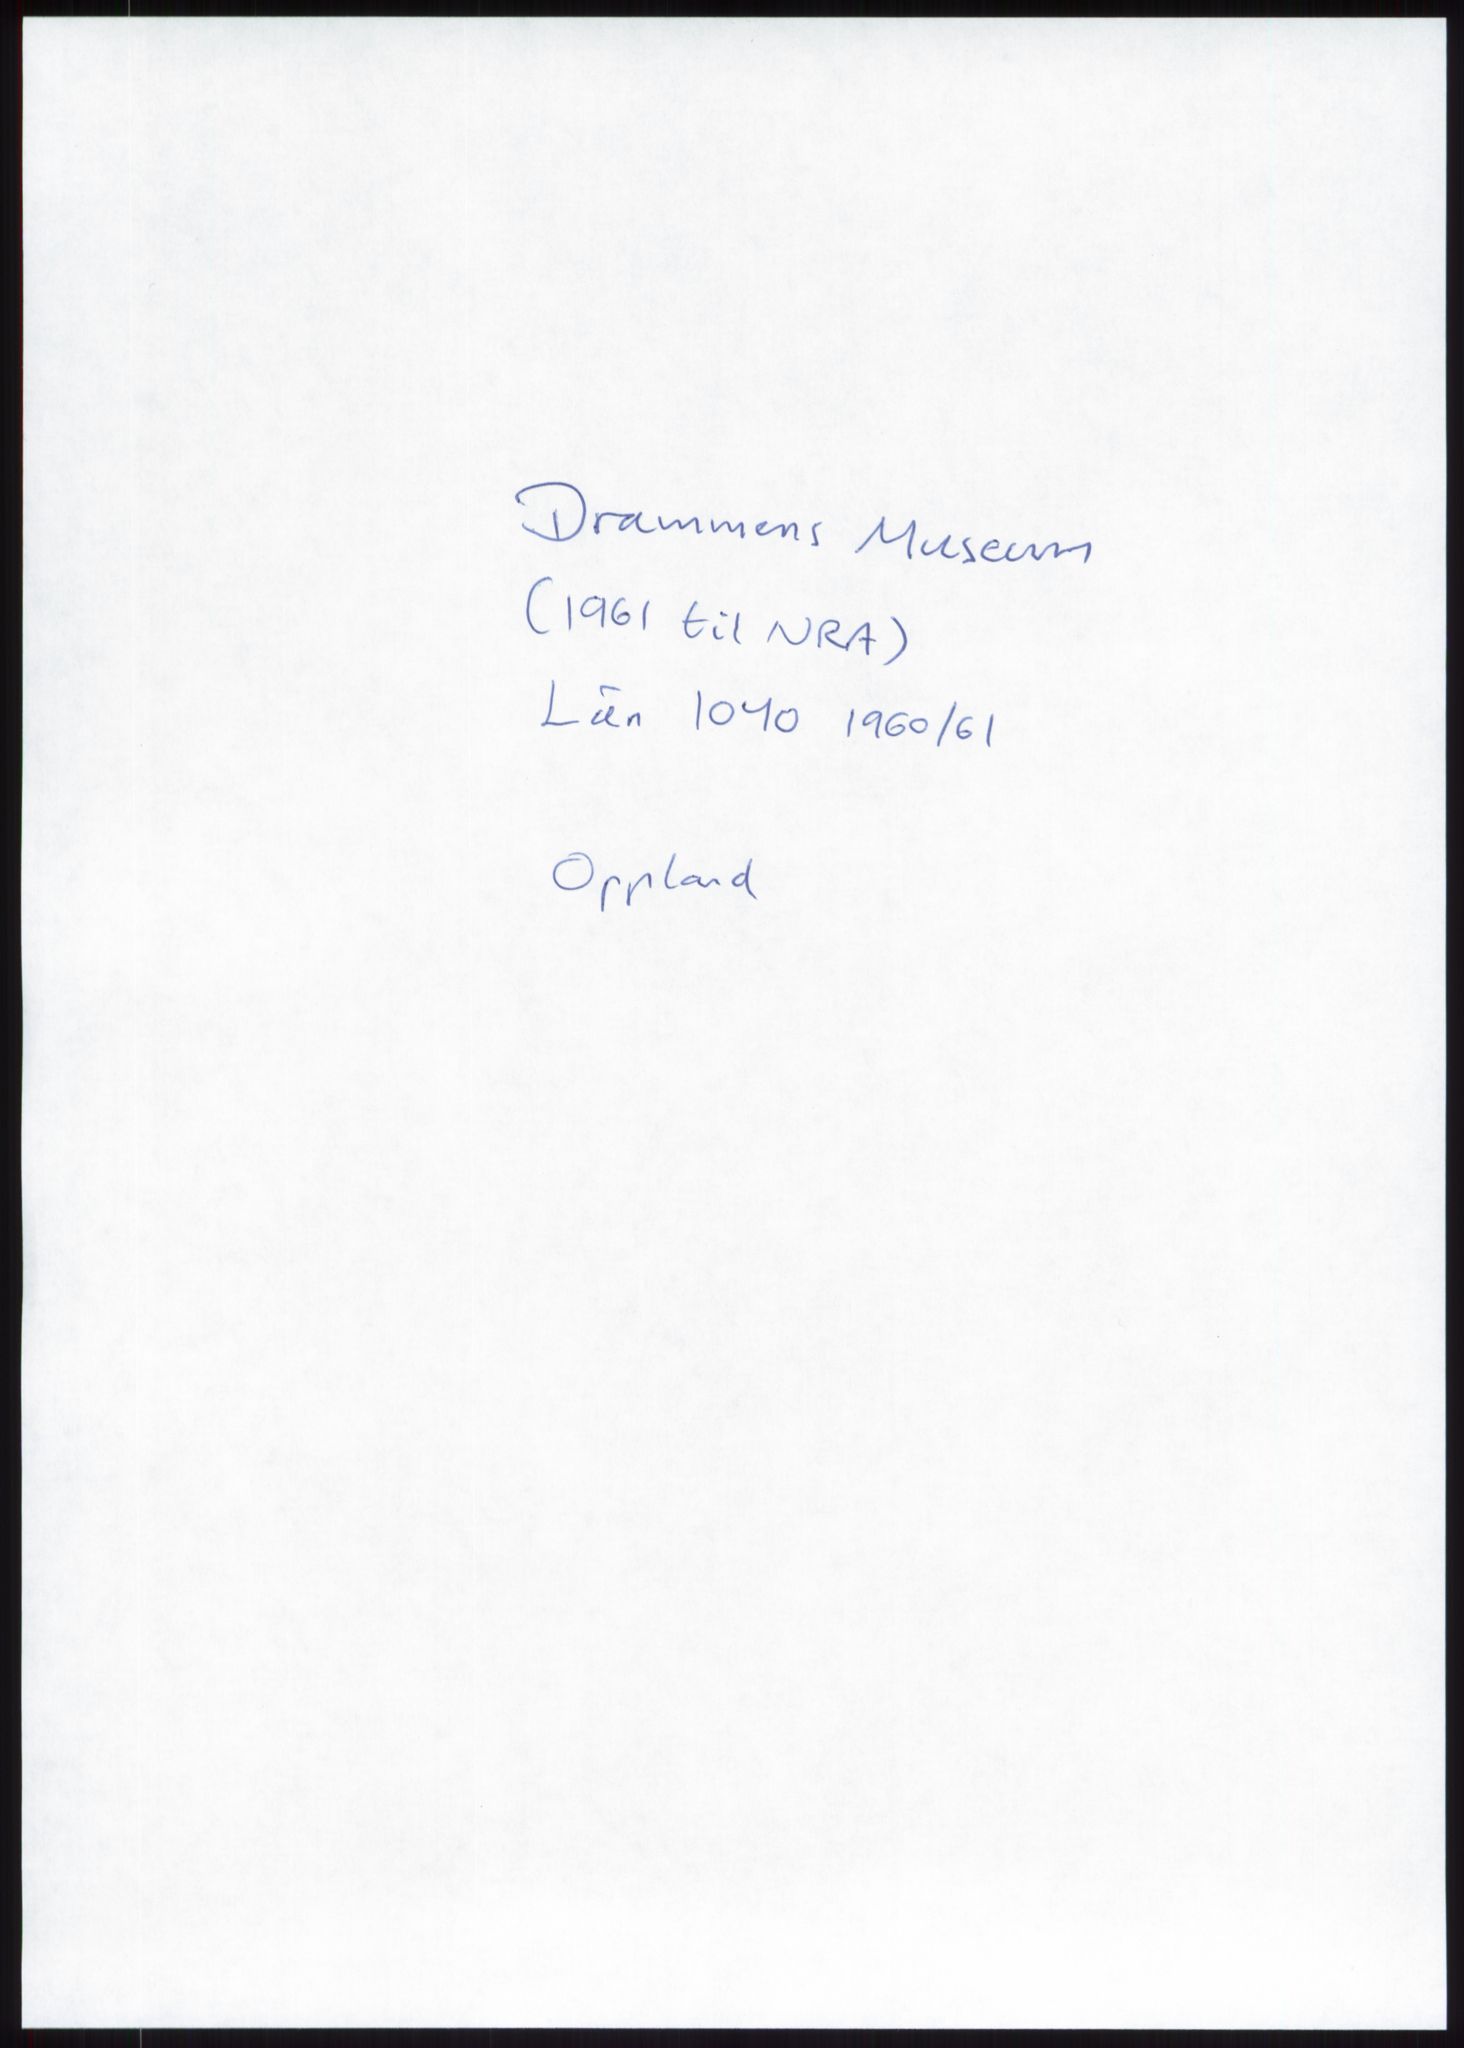 Drammens Museum
(1961 til NRA)
Lån 1040 1960/61
Oppland